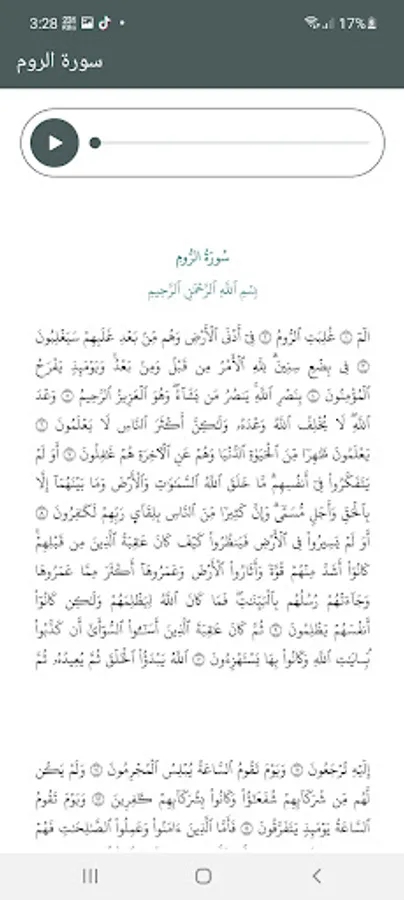 3:28
17%
سورة الروم
سُورَةُ الرُّومِ
بِسْمِ ٱللَّهِ ٱلرَّحْمَٰنِ ٱلرَّحِيمِ
الٓمٓ ۝ غُلِبَتِ ٱلرُّومُ ۝ فِىٓ أَدْنَى ٱلْأَرْضِ وَهُم مِّنۢ بَعْدِ غَلَبِهِمْ سَيَغْلِبُونَ
۝ فِى بِضْعِ سِنِينَ ۗ لِلَّهِ ٱلْأَمْرُ مِن قَبْلُ وَمِنۢ بَعْدُ ۚ وَيَوْمَئِذٍ يَفْرَحُ
ٱلْمُؤْمِنُونَ ۝ بِنَصْرِ ٱللَّهِ ۚ يَنصُرُ مَن يَشَآءُ ۖ وَهُوَ ٱلْعَزِيزُ ٱلرَّحِيمُ ۝ وَعْدَ
ٱللَّهِ ۖ لَا يُخْلِفُ ٱللَّهُ وَعْدَهُۥ وَلَٰكِنَّ أَكْثَرَ ٱلنَّاسِ لَا يَعْلَمُونَ ۝
يَعْلَمُونَ ظَٰهِرًا مِّنَ ٱلْحَيَوٰةِ ٱلدُّنْيَا وَهُمْ عَنِ ٱلْءَاخِرَةِ هُمْ غَٰفِلُونَ ۝ أَوَلَمْ
يَتَفَكَّرُوا۟ فِىٓ أَنفُسِهِم ۗ مَّا خَلَقَ ٱللَّهُ ٱلسَّمَٰوَٰتِ وَٱلْأَرْضَ وَمَا بَيْنَهُمَآ إِلَّا
بِٱلْحَقِّ وَأَجَلٍ مُّسَمًّى ۗ وَإِنَّ كَثِيرًا مِّنَ ٱلنَّاسِ بِلِقَآئِ رَبِّهِمْ لَكَٰفِرُونَ ۝
أَوَلَمْ يَسِيرُوا۟ فِى ٱلْأَرْضِ فَيَنظُرُوا۟ كَيْفَ كَانَ عَٰقِبَةُ ٱلَّذِينَ مِن قَبْلِهِمْ ۚ
كَانُوٓا۟ أَشَدَّ مِنْهُمْ قُوَّةً وَأَثَارُوا۟ ٱلْأَرْضَ وَعَمَرُوهَآ أَكْثَرَ مِمَّا عَمَرُوهَا
وَجَآءَتْهُمْ رُسُلُهُم بِٱلْبَيِّنَٰتِ ۖ فَمَا كَانَ ٱللَّهُ لِيَظْلِمَهُمْ وَلَٰكِن كَانُوٓا۟
أَنفُسَهُمْ يَظْلِمُونَ ۝ ثُمَّ كَانَ عَٰقِبَةَ ٱلَّذِينَ أَسَٰٓـُٔوا۟ ٱلسُّوٓأَىٰٓ أَن كَذَّبُوا۟
بِـَٔايَٰتِ ٱللَّهِ وَكَانُوا۟ بِهَا يَسْتَهْزِءُونَ ۝ ٱللَّهُ يَبْدَؤُا۟ ٱلْخَلْقَ ثُمَّ يُعِيدُهُۥ ثُمَّ
إِلَيْهِ تُرْجَعُونَ ۝ وَيَوْمَ تَقُومُ ٱلسَّاعَةُ يُبْلِسُ ٱلْمُجْرِمُونَ ۝ وَلَمْ يَكُن
لَّهُم مِّن شُرَكَآئِهِمْ شُفَعَٰٓؤُا۟ وَكَانُوا۟ بِشُرَكَآئِهِمْ كَٰفِرِينَ ۝ وَيَوْمَ تَقُومُ
ٱلسَّاعَةُ يَوْمَئِذٍ يَتَفَرَّقُونَ ۝ فَأَمَّا ٱلَّذِينَ ءَامَنُوا۟ وَعَمِلُوا۟ ٱلصَّٰلِحَٰتِ فَهُمْ